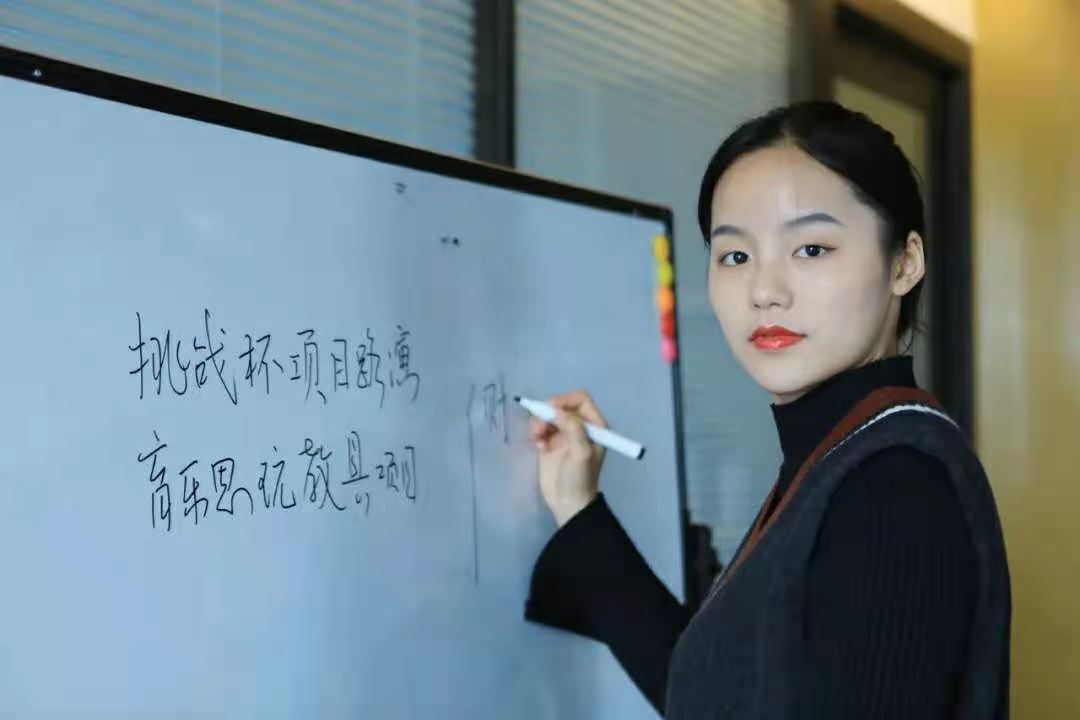 挑战杯项目路演
育乐思玩教具项目
财